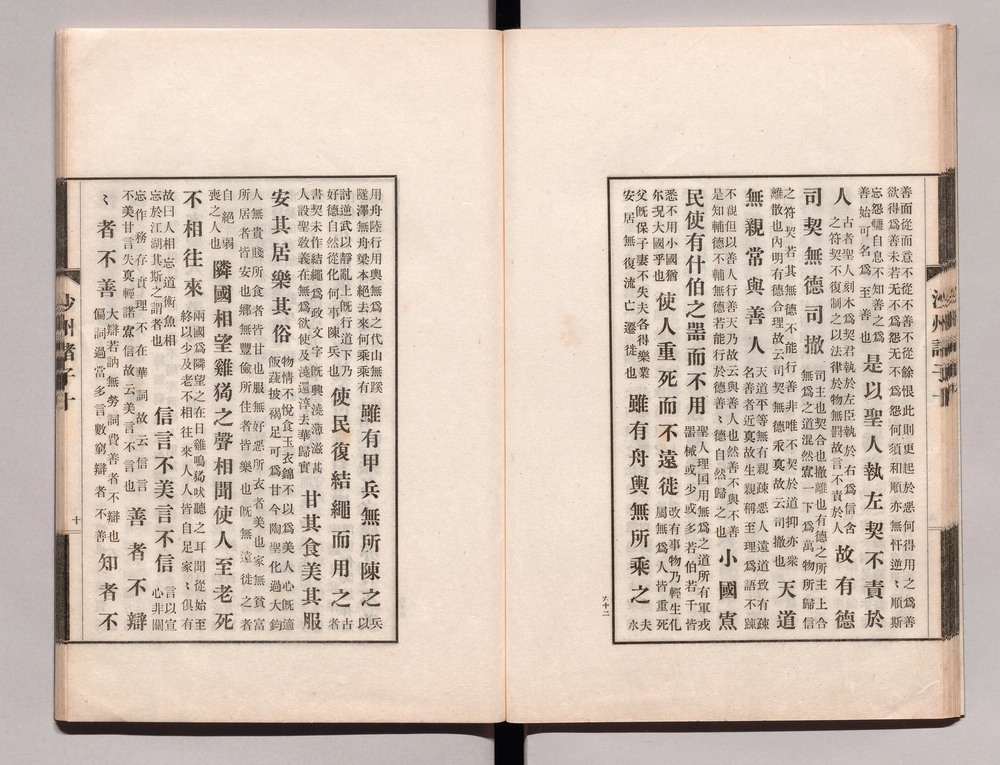 善面從而意不從不善不從餘恨此則更起於惡何得用之爲善
欲得爲善未若无不爲怨无不爲怨何須和和順亦無忤逆〻順斯
忘怨讎自息不知善之爲
善始可名爲至善也
是以聖人執左契不責於
人
古者聖人刻木爲契君執於左臣執於右爲信舍
之符契不復制之以法律於物無罰故言不責於人
故有德
司契無德司撤
司主也契合也撤離也也有德之所主上合
無爲之道混然寘一下爲萬物所歸信
之符契若其無德不能行善非唯不契於道抑亦衆
離散也內明有德合理故云司契無德乖眞故云司撤也
天道
無親常與善人
天道平等無有親疎惡人遠道致有疎
名善者近眞故生親稱至理爲語不踈
不親但以善人行善天乃故云與善人也然善不與不善
是知輔德不輔無德若能行於德善〻德自然歸之也
小國寡
民使有什伯之噐而不用
聖人理国用無爲之道所有軍戎
噐械或少或多若伯若千皆
悉不用小國猶
尓況大國乎也
使人重死而不遠徙
改有事物乃輕生化
属無爲人皆重死
父既保子妻不失夫各得樂業
安居無復流亡遷徙也
雖有舟輿無所乘之
夫
水
六十二
用舟陸行用輿無爲之代山無蹊
隧澤無舟梁本絕去來何乘有
雖有甲兵無所陳之
兵
以
討逆武以靜亂上既行道下乃
好德自然從化何事陳兵也
使民復結繩而用之
古
者
書契未作結繩爲政文字既興澆薄滋甚
人設聖教義在無爲欲使及澆還淳去華歸實
甘其食美其服
安其居樂其俗
物情不悅食玉衣錦不以爲美人心既適
飯蔬披褐足可爲甘今陶聖化過大鈞
人無貴賤所食者皆甘也服無好惡所衣者美也家無貧富
所居者皆安也郷無豐儉所住者皆樂也既無遠徙之者
自絕弱
喪之人也
隣國相望雞猗之聲相聞使人至老死
不相往來
兩國爲隣望之在日雞鳴猗吠聽之耳聞從始至
終以少及老不相往來人人皆自足家〻俱有
故曰人相忘道術魚相
忘於江湖其斯之謂者也
信言不美言不信
言以宣
心非關
忘作務存責理不在華詞故云信言
不美甘言失眞輕諾寡信故云美言不言也
善者不辯
〻者不善
大辯若訥無勞詞費善者不辯也
偏詞過當多言數窮辯者不善
知者不
沙州諸子十
十